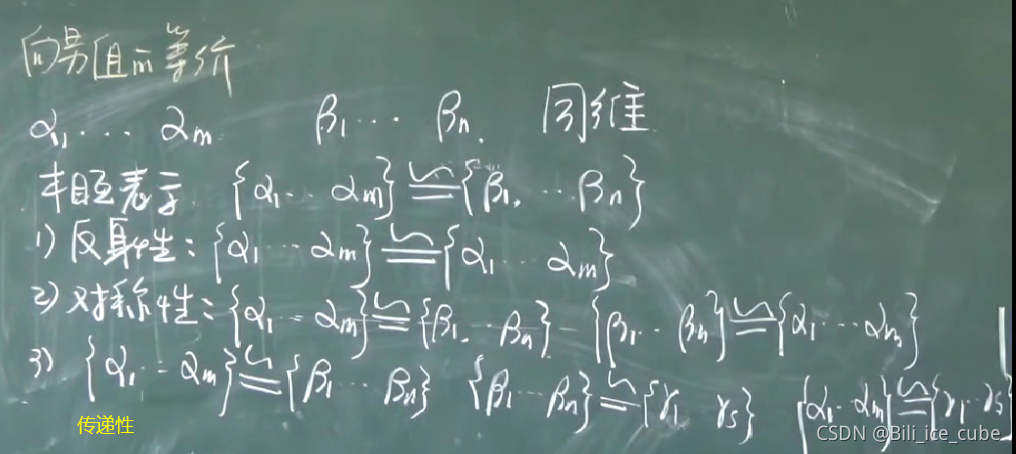 向量组的等价
α₁ ⋯ αm β₁ ⋯ βn. 同维
相互表示 {α₁ ⋯ αm} ≌ {β₁. ⋯ βn}
1) 反身性: {α₁ ⋯ αm} ≌ {α₁ ⋯ αm}
2) 对称性: {α₁ ⋯ αm} ≌ {β₁ ⋯ βn} {β₁ ⋯ βn} ≌ {α₁ ⋯ αm}
3) {α₁ ⋯ αm} ≌ {β₁ ⋯ βn} {β₁ ⋯ βn} ≌ {γ₁ γs} {α₁ ⋯ αm} ≌ {γ₁ ⋯ γs}
传递性
CSDN @Bili_ice_cube